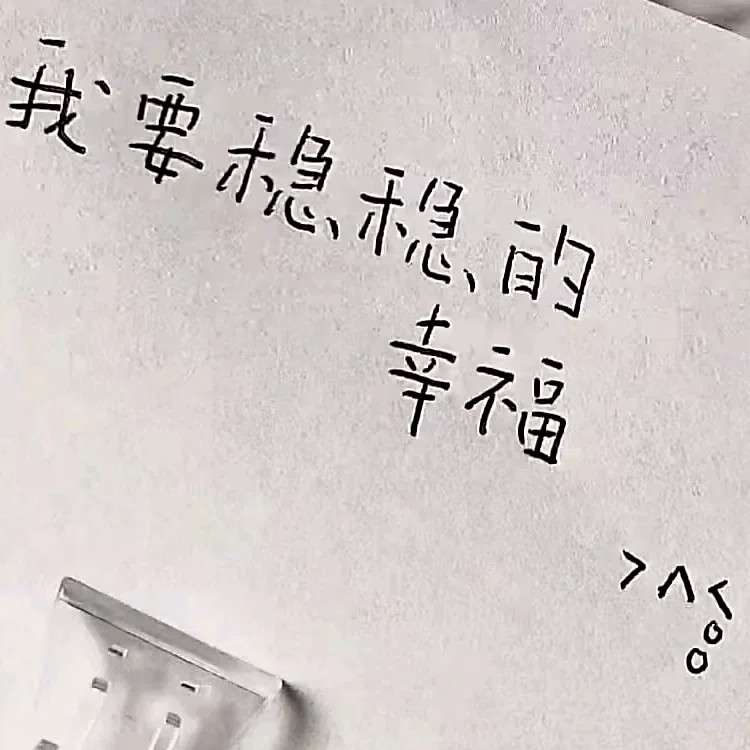 我要稳稳的
幸福
>^<